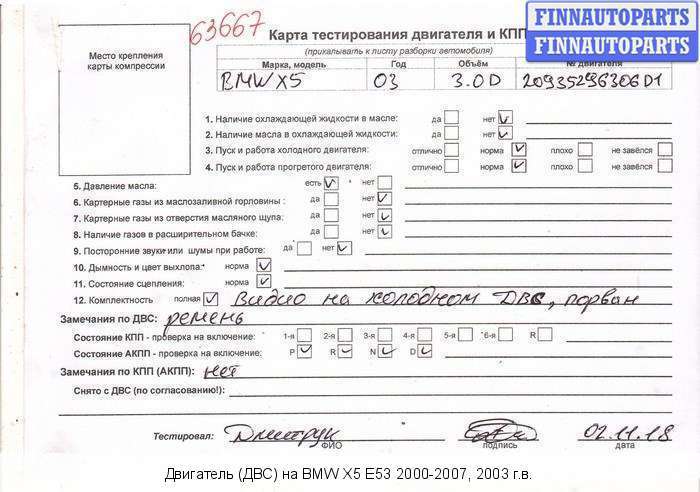 63667
Карта тестирования двигателя и КПП
FINNAUTOPARTS
FINNAUTOPARTS
(прикалывать к листу разборки автомобиля)
Место крепления
карты компрессии
Марка, модель Год Объём № двигателя
BMW X5 03 3.0D 20935296306D1
1. Наличие охлаждающей жидкости в масле: да нет
2. Наличие масла в охлаждающей жидкости: да нет
3. Пуск и работа холодного двигателя: отлично норма плохо не завёлся
4. Пуск и работа прогретого двигателя: отлично норма плохо не завёлся
5. Давление масла: есть нет
6. Картерные газы из маслозаливной горловины : да нет
7. Картерные газы из отверстия масляного щупа: да нет
8. Наличие газов в расширительном бачке: да нет
9. Посторонние звуки или шумы при работе: да нет
10. Дымность и цвет выхлопа: норма
11. Состояние сцепления: норма
12. Комплектность полная Видио на холодном ДВС, порван
Замечания по ДВС: ремень
Состояние КПП - проверка на включение: 1-я 2-я 3-я 4-я 5-я 6-я R
Состояние АКПП - проверка на включение: P R N D
Замечания по КПП (АКПП): нет
Снято с ДВС (по согласованию!):
Тестировал: Дмитрук 02.11.18
ФИО подпись дата
Двигатель (ДВС) на BMW X5 E53 2000-2007, 2003 г.в.